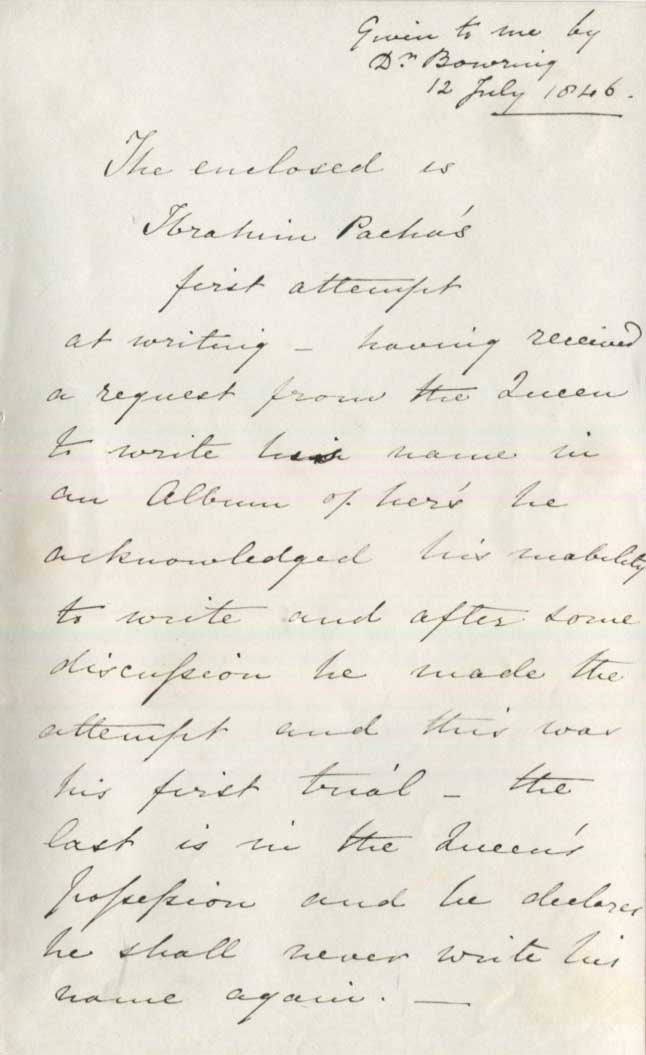 Given to me by
Dr Bowring
12 July 1846.
The enclosed is
Ibrahim Pacha's
first attempt
at writing – having received
a request from the Queen
to write his name in
an Album of her's he
acknowledged his inability
to write and after some
discussion he made the
attempt and this was
his first trial – the
last is in the Queen's
possession and he declares
he shall never write his
name again. —